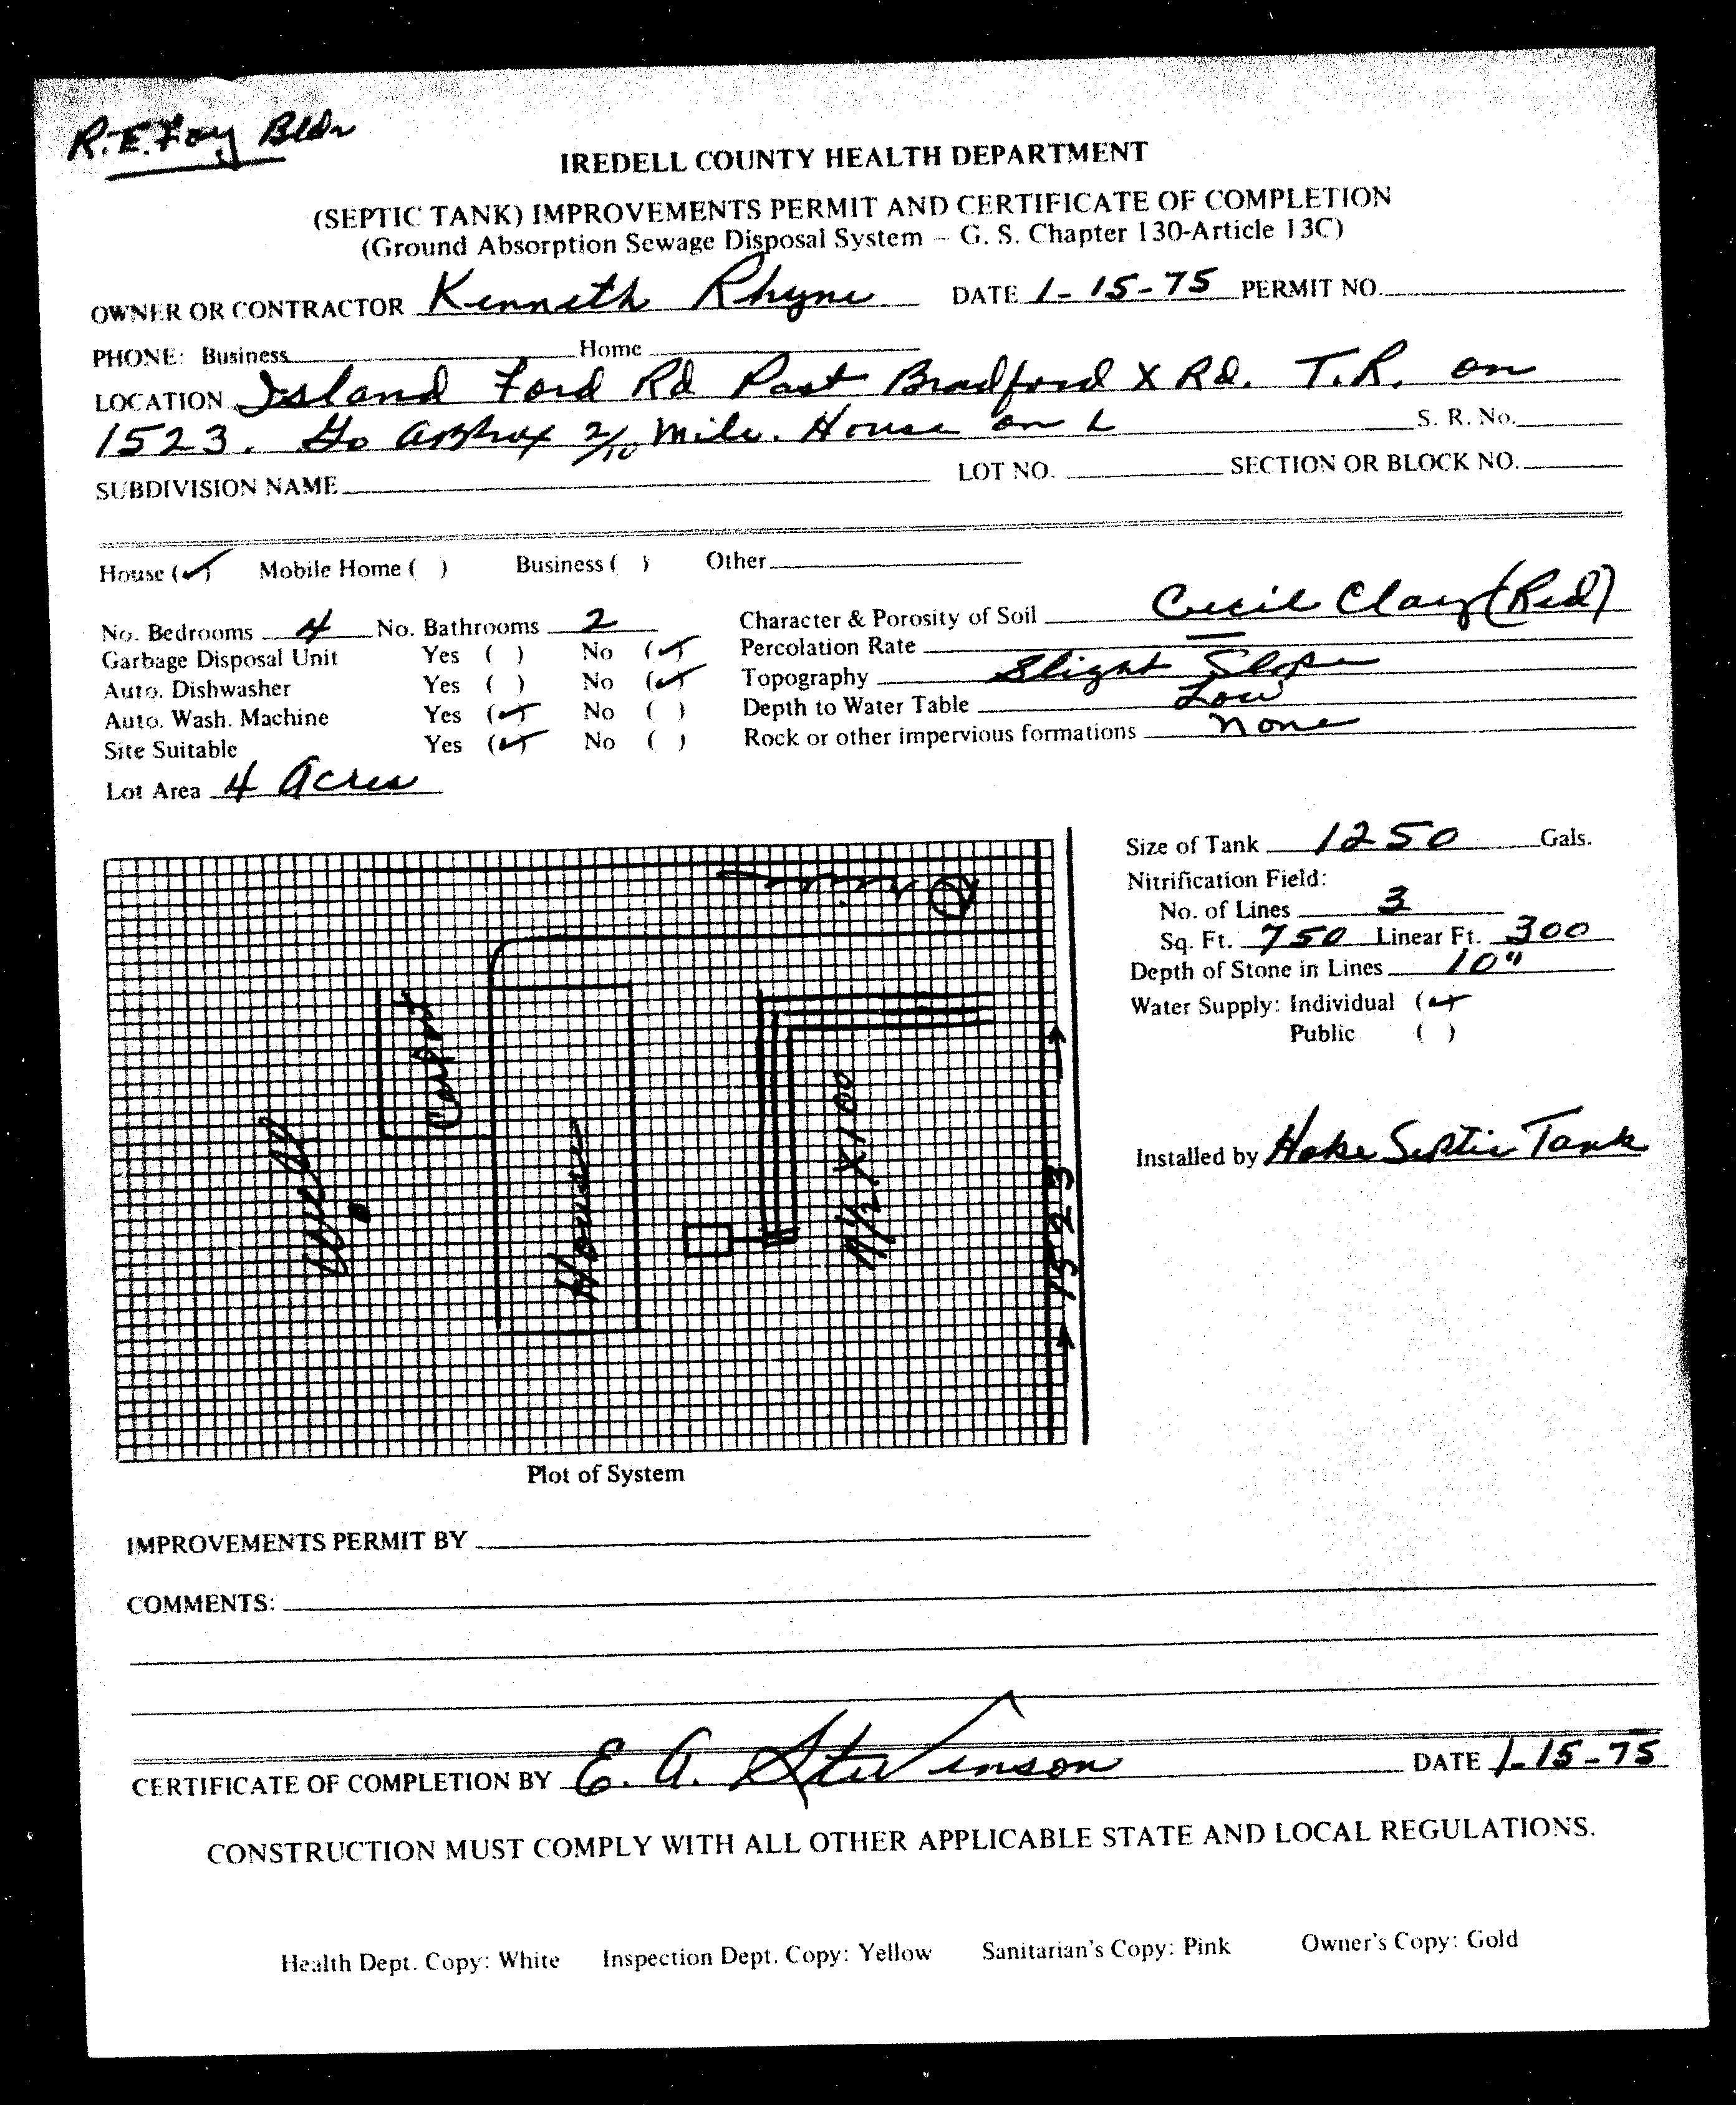 R.E. Foy Bldr
IREDELL COUNTY HEALTH DEPARTMENT
(SEPTIC TANK) IMPROVEMENTS PERMIT AND CERTIFICATE OF COMPLETION
(Ground Absorption Sewage Disposal System – G. S. Chapter 130-Article 13C)
OWNER OR CONTRACTOR Kenneth Rhyne DATE 1-15-75 PERMIT NO.
PHONE: Business Home
LOCATION Island Ford Rd Past Bradford X Rd. T.R. on
1523. Go approx 2/10 mile. House on L S. R. No.
SUBDIVISION NAME LOT NO. SECTION OR BLOCK NO.
House (✓) Mobile Home ( ) Business ( ) Other
No. Bedrooms 4 No. Bathrooms 2 Character & Porosity of Soil Cecil Clay (Red)
Garbage Disposal Unit Yes ( ) No (✓) Percolation Rate
Auto. Dishwasher Yes ( ) No (✓) Topography Slight Slope
Auto. Wash. Machine Yes (✓) No ( ) Depth to Water Table Low
Site Suitable Yes (✓) No ( ) Rock or other impervious formations none
Lot Area 4 Acres
Size of Tank 1250 Gals.
Nitrification Field:
No. of Lines 3
Sq. Ft. 750 Linear Ft. 300
Depth of Stone in Lines 10"
Water Supply: Individual (✓)
Public ( )
Installed by Hoke Septic Tank
Carport
House
1523
Plot of System
IMPROVEMENTS PERMIT BY
COMMENTS:
CERTIFICATE OF COMPLETION BY E. A. Stevenson DATE 1-15-75
CONSTRUCTION MUST COMPLY WITH ALL OTHER APPLICABLE STATE AND LOCAL REGULATIONS.
Health Dept. Copy: White Inspection Dept. Copy: Yellow Sanitarian's Copy: Pink Owner's Copy: Gold